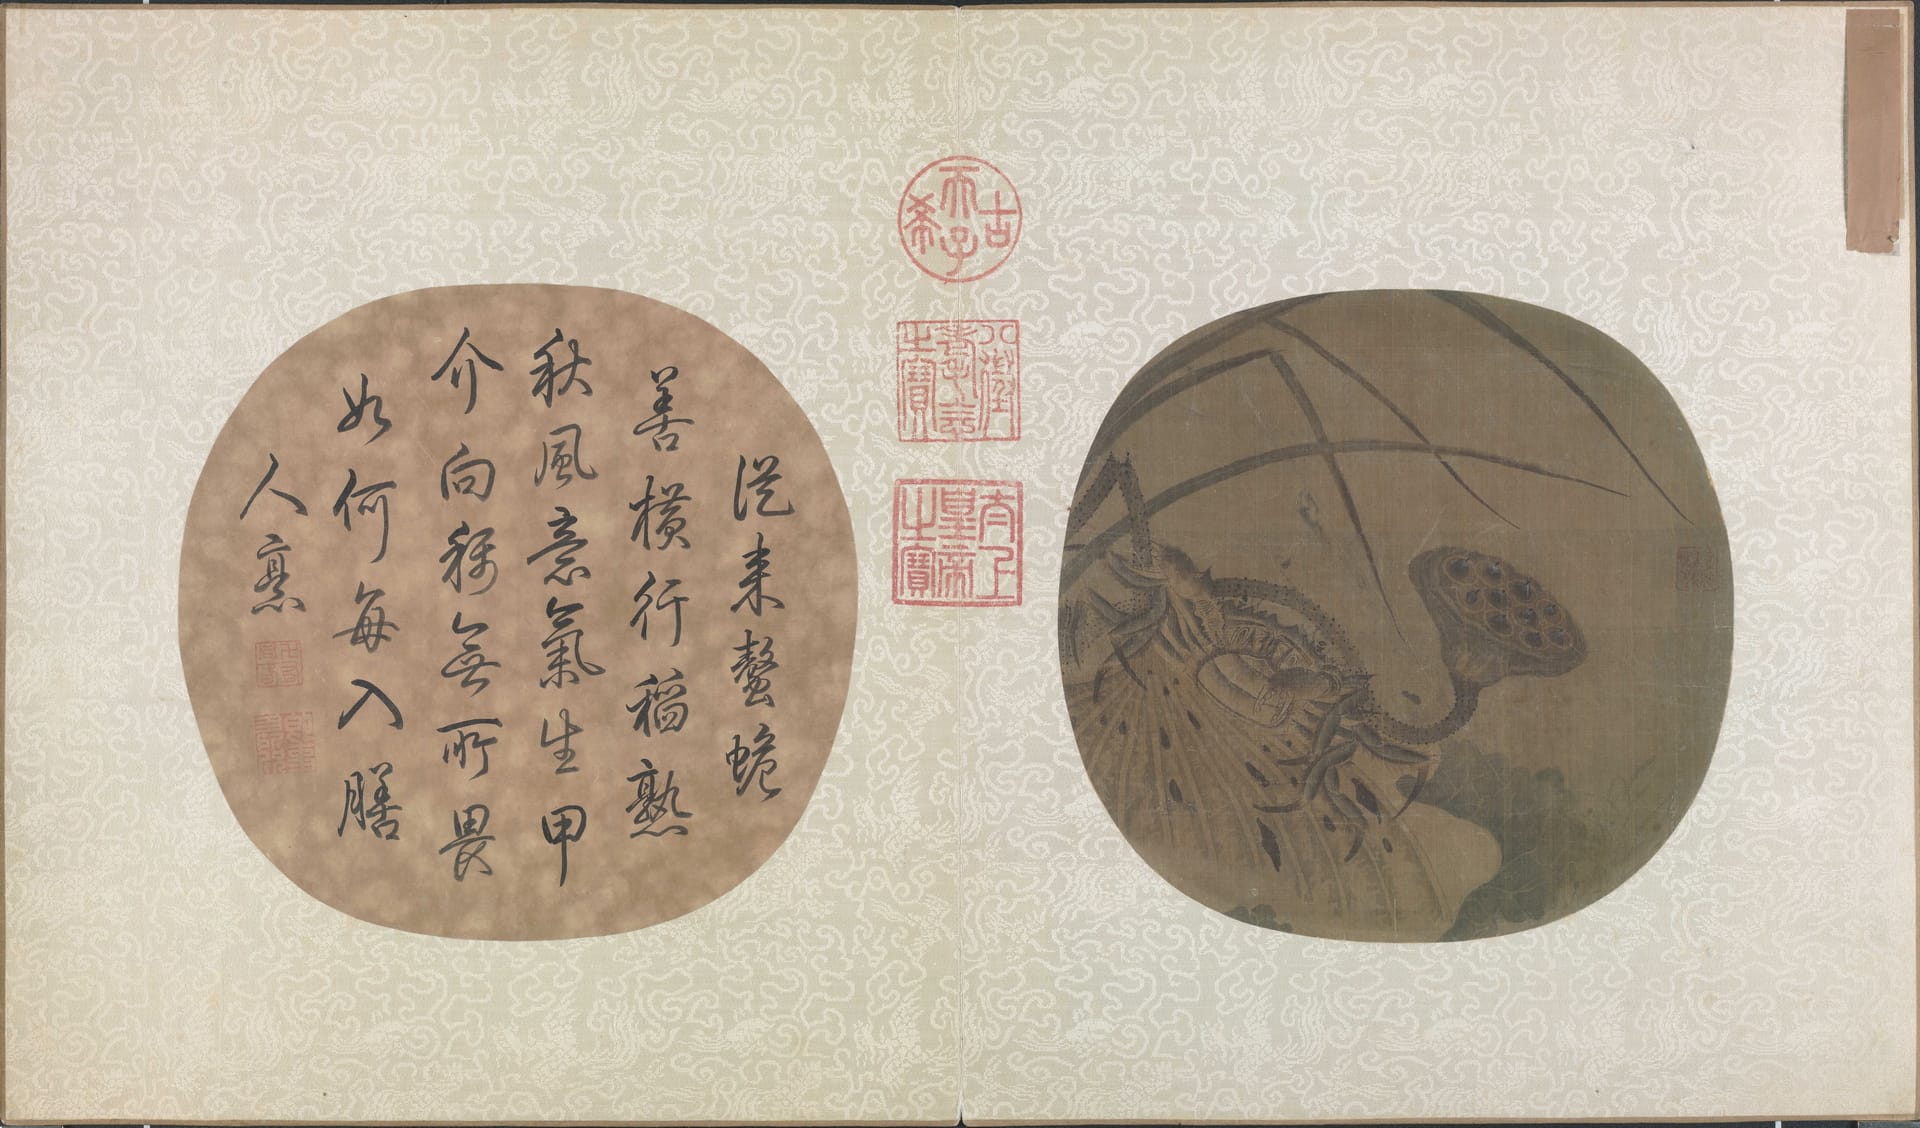 從来螯蟾
善橫行稻熟
秋風意氣生甲
介向稱無所畏
如何每入膳
人烹
古希天子
八徵耄念之寶
太上皇帝之寶